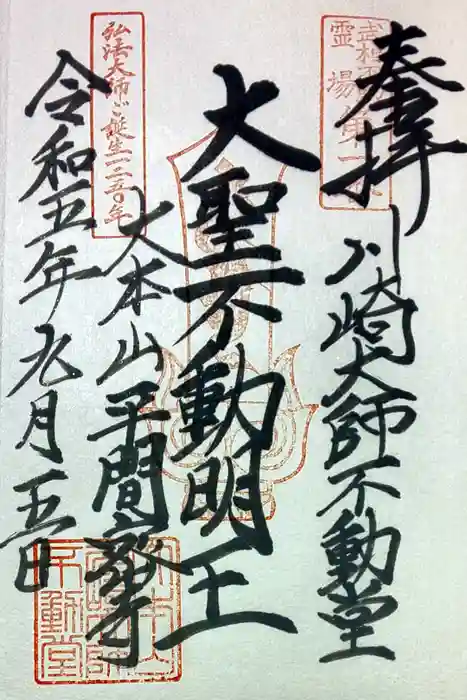 奉拝
武相
霊場第一
川崎大師不動堂
大聖不動明王
弘法大師ご誕生一二五〇年
大本山平間寺
令和五年九月五日
大本山
不動堂